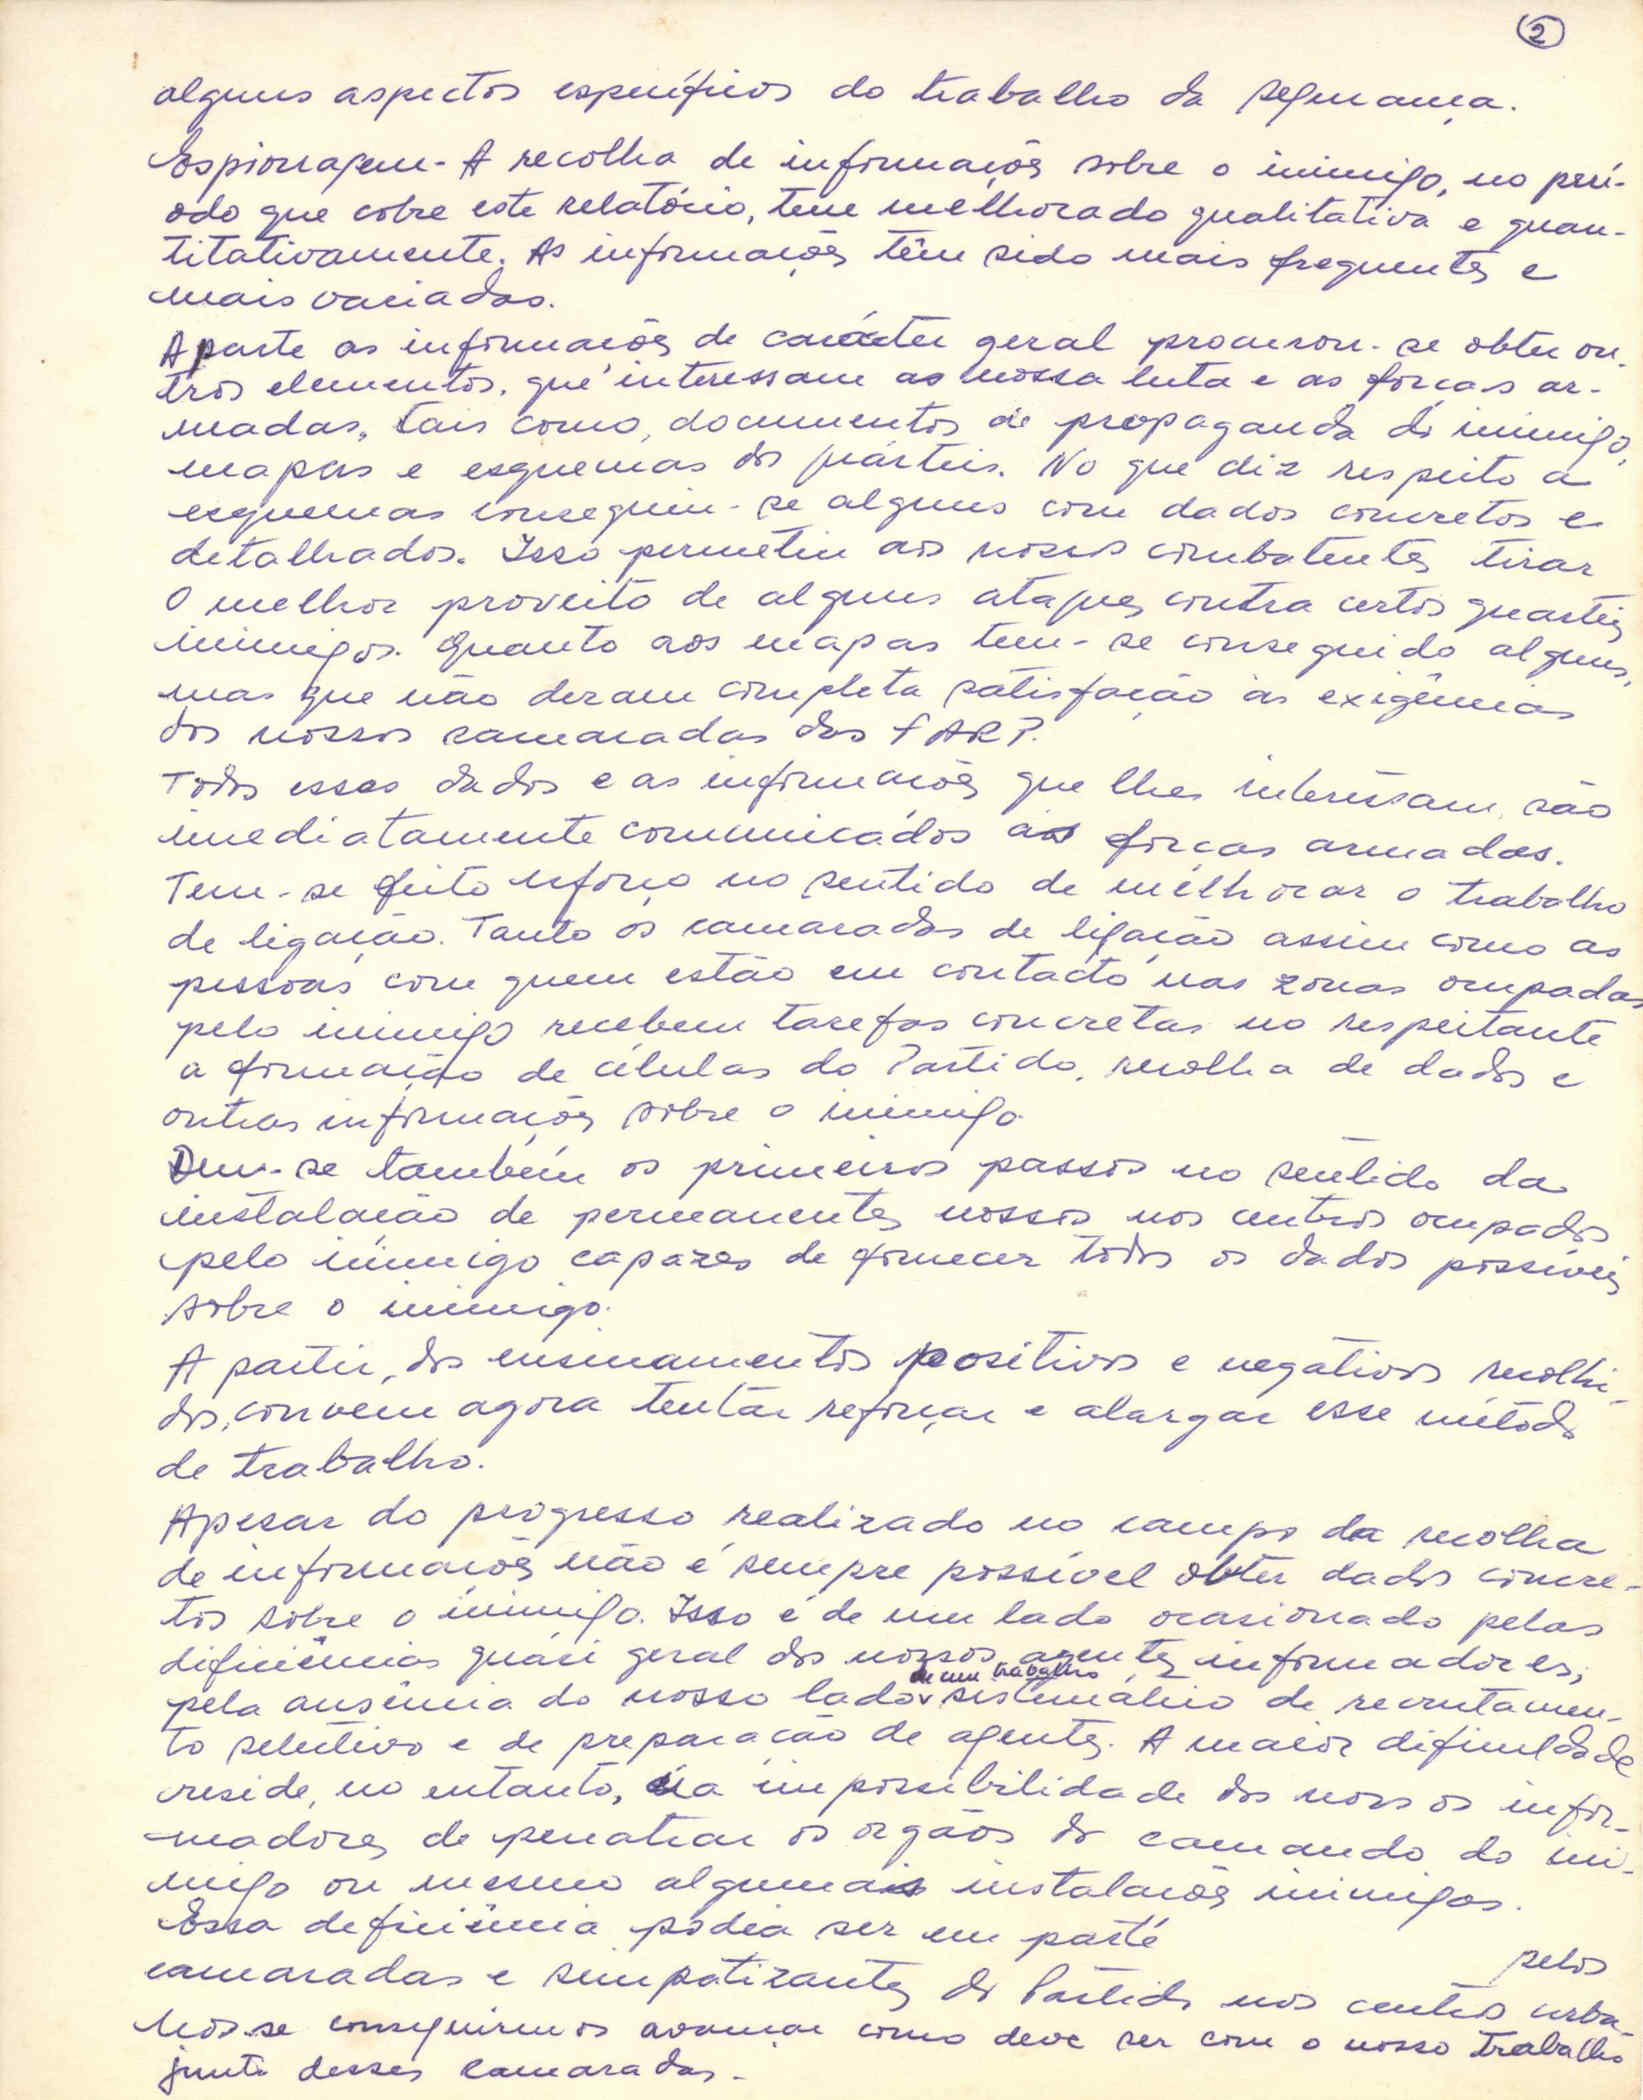 2
alguns aspectos específicos do trabalho da segurança.
Espionagem - A recolha de informações sobre o inimigo, no perí-
odo que cobre este relatório, tem melhorado qualitativa e quan-
titativamente. As informações têm sido mais frequentes e
mais variadas.
Aparte as informações de carácter geral procurou-se obter ou-
tros elementos, que interessam as nossa luta e as forças ar-
madas, tais como, documentos de propaganda do inimigo,
mapas e esquemas dos quartéis. No que diz respeito a
esquemas conseguiu-se alguns com dados concretos e
detalhados. Isso permetiu aos nossos combatentes tirar
o melhor proveito de alguns ataques contra certos quartéis
inimigos. Quanto aos mapas tem-se conseguido alguns,
mas que não deram completa satisfação às exigências
dos nossos camaradas das FARP.
Todos esses dados e as informações que lhes interessam, são
imediatamente comunicados às forças armadas.
Tem-se feito esforço no sentido de melhorar o trabalho
de ligação. Tanto os camaradas de ligação assim como as
pessoas com quem estão em contacto nas zonas ocupadas
pelo inimigo recebem tarefas concretas no respeitante
a formação de células do Partido, recolha de dados e
outras informações sobre o inimigo.
Deu-se também os primeiros passos no sentido da
instalação de permanentes nossos nos centros ocupados
pelo inimigo capazes de fornecer todos os dados possíveis
sobre o inimigo.
A partir, dos ensinamentos positivos e negativos recolhi-
dos, convem agora tentar reforçar e alargar esse método
de trabalho.
Apesar do progresso realizado no campo da recolha
de informações não é sempre possível obter dados concre-
tos sobre o inimigo. Isso é de um lado ocasionado pelas
dificiências quási geral dos nossos agentes informadores,
pela ausência do nosso lado de um trabalho sistemático de recrutamen-
to seletivo e de preparação de agentes. A maior dificuldade
reside, no entanto, na impossibilidade dos nossos infor-
madores de penatrar os orgãos do comando do ini-
migo ou mesmo algumas instalações inimigas.
Essa deficiência podia ser em parte pelos
camaradas e simpatizantes do Partido nos centros urba-
nos se conseguirmos avançar como deve ser com o nosso trabalho
junto desses camaradas.